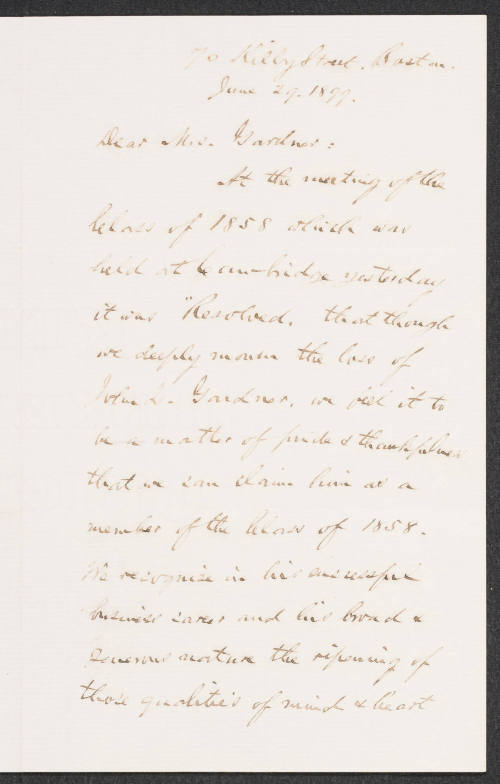 70 Kilby Street. Boston.
June 29. 1899.
Dear Mrs. Gardner:
At the meeting of the
Class of 1858 which was
held at Cambridge yesterday
it was "Resolved, that though
we deeply mourn the loss of
John L. Gardner, we feel it to
be a matter of pride & thankfulness
that we can claim him as a
member of the Class of 1858.
We recognise in his successful
business career and his broad &
generous nature the ripening of
those qualities of mind & heart